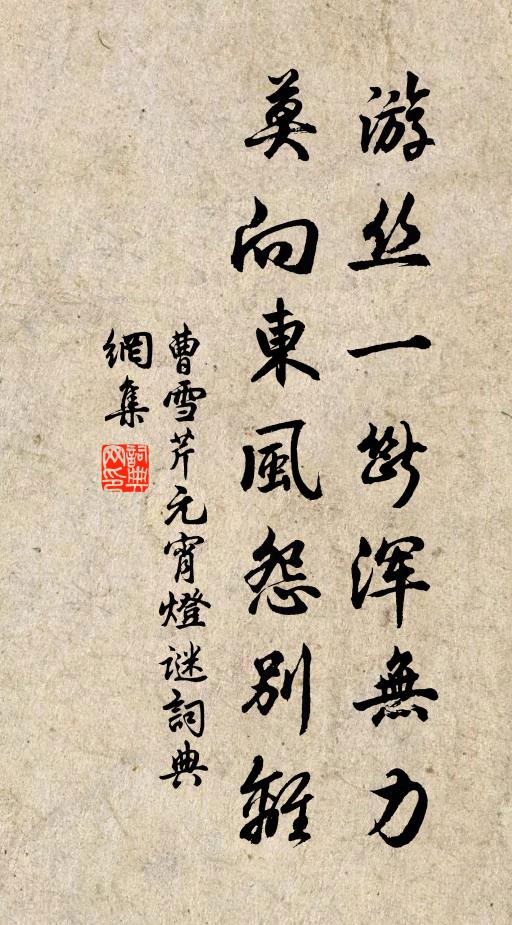 游丝一断浑無力
莫向東風怨别離
曹雪芹元宵燈谜詞典
網集
詞典
网印